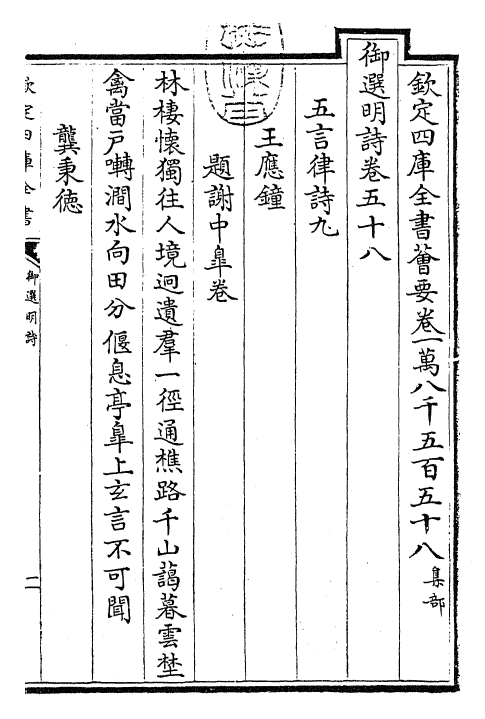 欽定四庫全書薈要卷一萬八千五百五十八集部
御選明詩卷五十八
五言律詩九
王應鐘
題謝中臯卷
林棲懷獨往人境迥遺羣一徑通樵路千山藹暮雲埜
禽當户囀澗水向田分偃息亭臯上玄言不可聞
龔秉徳
欽定四庫全書
御選明詩